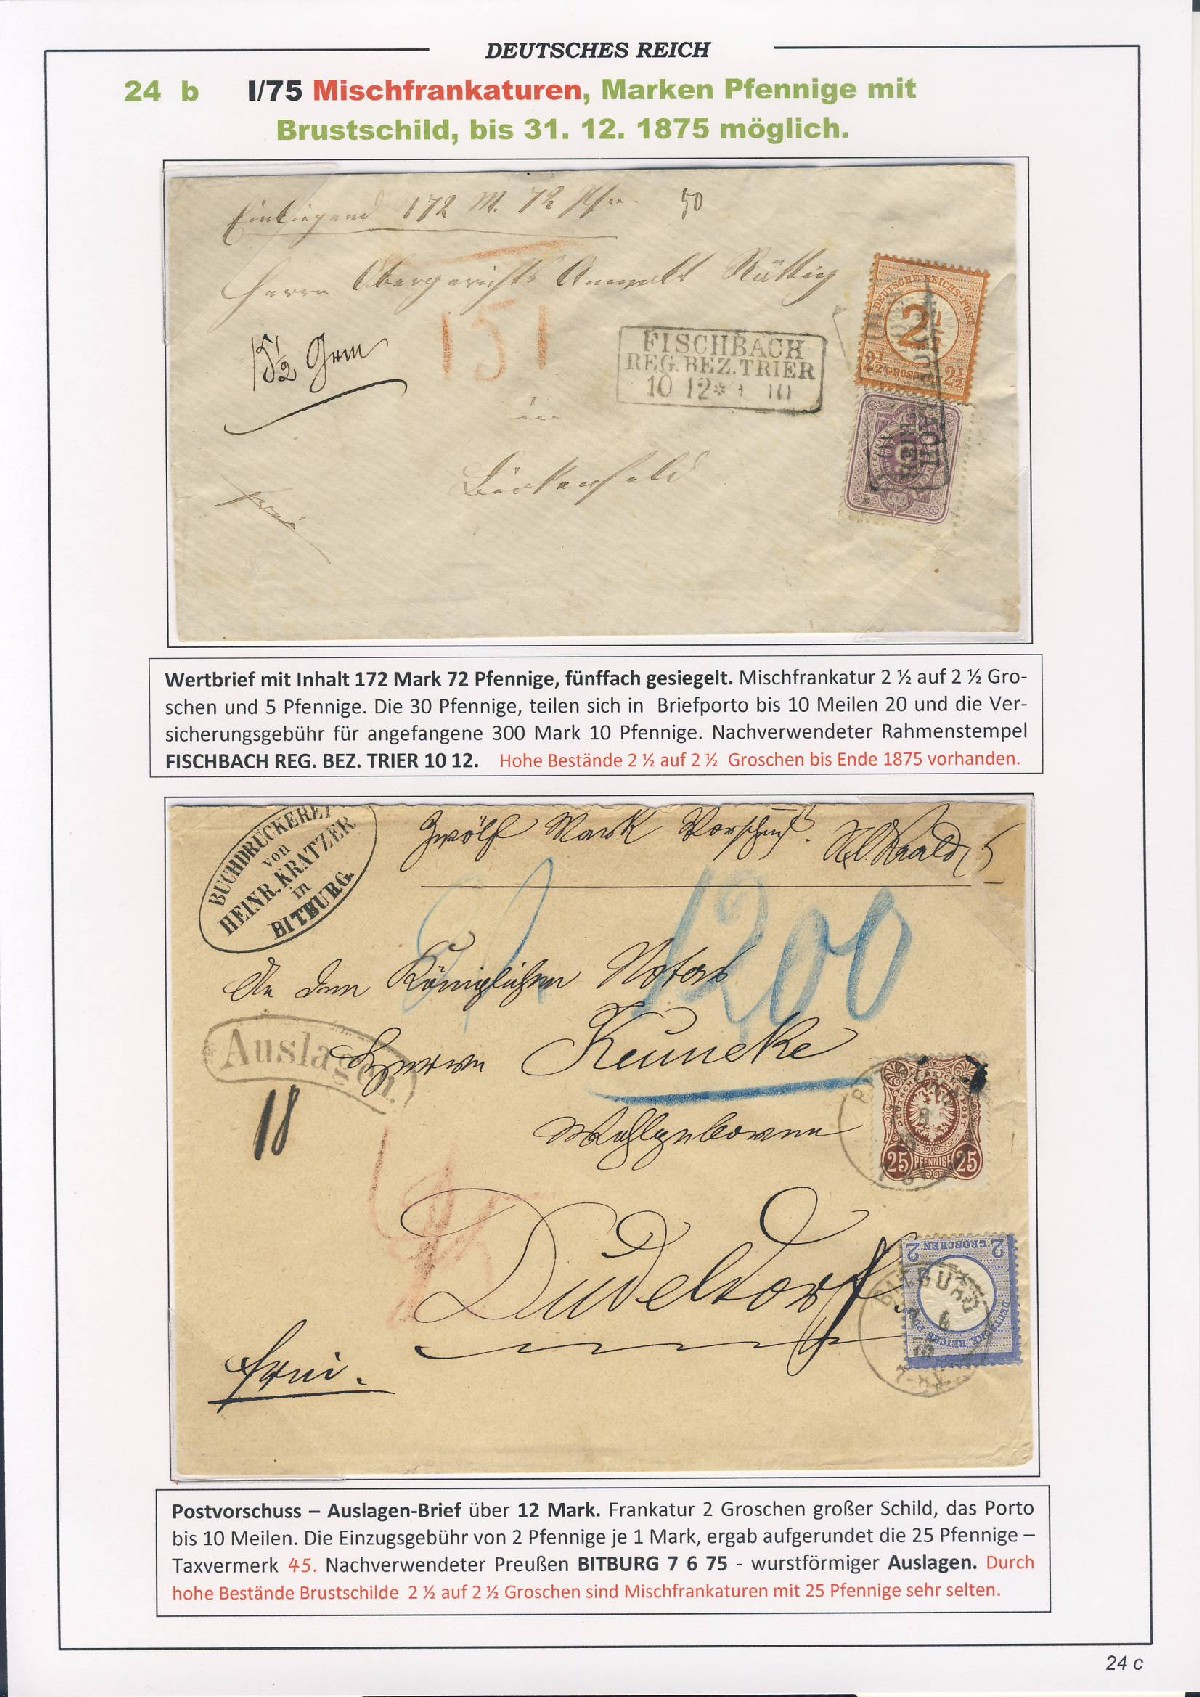 DEUTSCHES REICH
24 b I/75 Mischfrankaturen, Marken Pfennige mit
Brustschild, bis 31. 12. 1875 möglich.
Einliegend 172 M. 72 Pfn. 50
Herrn Obergerichts Anwalt Rüttig
151
15½ Grm
FISCHBACH
REG. BEZ. TRIER
10 12 *
in
Birkenfeld
frei
DEUTSCHE REICHS-POST
2½
2½ GROSCHEN 2½
Wertbrief mit Inhalt 172 Mark 72 Pfennige, fünffach gesiegelt. Mischfrankatur 2 ½ auf 2 ½ Gro-
schen und 5 Pfennige. Die 30 Pfennige, teilen sich in Briefporto bis 10 Meilen 20 und die Ver-
sicherungsgebühr für angefangene 300 Mark 10 Pfennige. Nachverwendeter Rahmenstempel
FISCHBACH REG. BEZ. TRIER 10 12. Hohe Bestände 2 ½ auf 2 ½ Groschen bis Ende 1875 vorhanden.
BUCHDRUCKEREI
von
HEINR. KRATZER
in
BITBURG.
Zwölf Mark Vorschuß.
1200
An den Königlichen Notar
Auslagen.
Herrn Keuneke
18
Wohlgeboren
25 PFENNIGE 25
Dudeldorf
2 GROSCHEN 2
BITBURG
frei.
Postvorschuss – Auslagen-Brief über 12 Mark. Frankatur 2 Groschen großer Schild, das Porto
bis 10 Meilen. Die Einzugsgebühr von 2 Pfennige je 1 Mark, ergab aufgerundet die 25 Pfennige –
Taxvermerk 45. Nachverwendeter Preußen BITBURG 7 6 75 - wurstförmiger Auslagen. Durch
hohe Bestände Brustschilde 2 ½ auf 2 ½ Groschen sind Mischfrankaturen mit 25 Pfennige sehr selten.
24 c